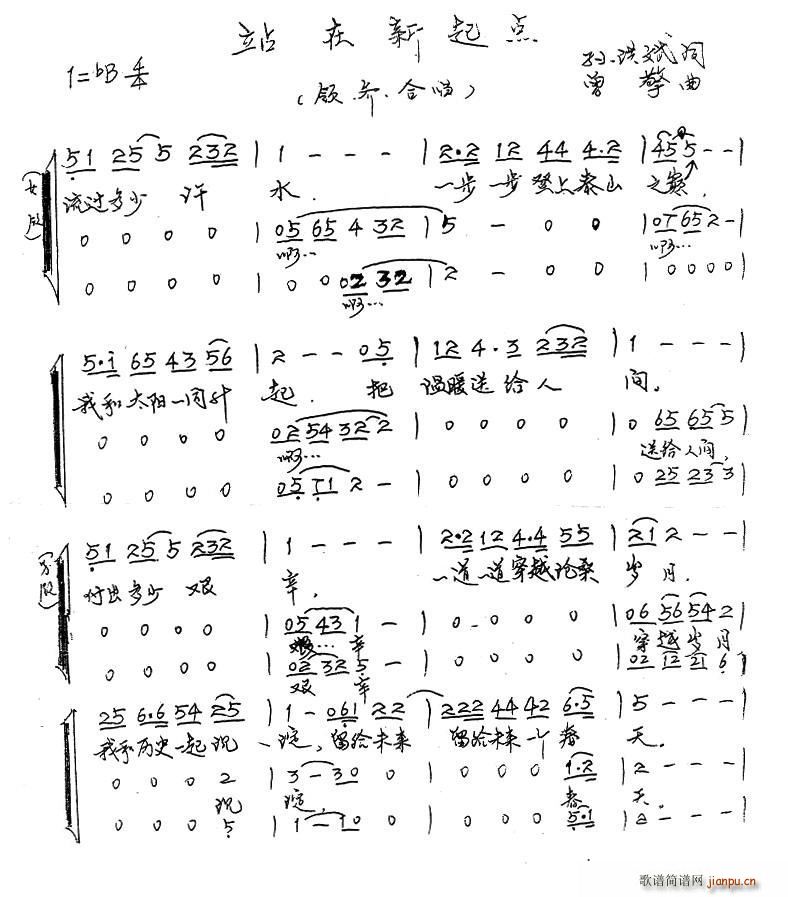 站在新起点
1=♭B 4/4
(领、齐、合唱)
孙洪斌词
曾擎曲
(女领)
51 25 5 232 | 1 - - - | 2·2 12 44 4·2 | 45 5 - - |
流过多少 汗 水. 一步一步登上泰山之巅.
0 0 0 0 | 05 65 4 32 | 5 - 0 0 | 07 65 2 - |
啊… 啊…
0 0 0 0 | 0 0 02 32 | 2 - 0 0 | 0 0 0 0 |
啊…
5·i 65 43 56 | 2 - - 05 | 12 4·3 232 | 1 - - - |
我和太阳一同升 起. 把 温暖送给人 间.
0 0 0 0 | 02 54 32 2 | 0 0 0 0 | 0 65 65 5 |
啊… 送给人间,
0 0 0 0 | 05 71 2 - | 0 0 0 0 | 0 25 23 3 |
(男领)
51 25 5 232 | 1 - - - | 2·2 12 4·4 55 | 21 2 - - |
付出多少 艰 辛. 一道一道穿越沧桑 岁月.
0 0 0 0 | 05 43 1 - | 0 0 0 0 | 06 56 54 2 |
艰… 辛 穿越岁月
0 0 0 0 | 02 32 5 - | 0 0 0 0 | 02 12 21 6 |
艰 辛
25 6·6 54 25 | 1 - 061 22 | 222 44 42 6·5 | 5 - - - |
我和历史一起沉 淀, 留给未来 留给未来一个春 天.
0 0 0 2 | 3 - 30 0 | 0 0 0 1·2 | 2 - - - |
沉 淀, 春 天.
0 0 0 5 | 1 - 10 0 | 0 0 0 5·1 | 2 - - - |
歌谱简谱网
jianpu.cn